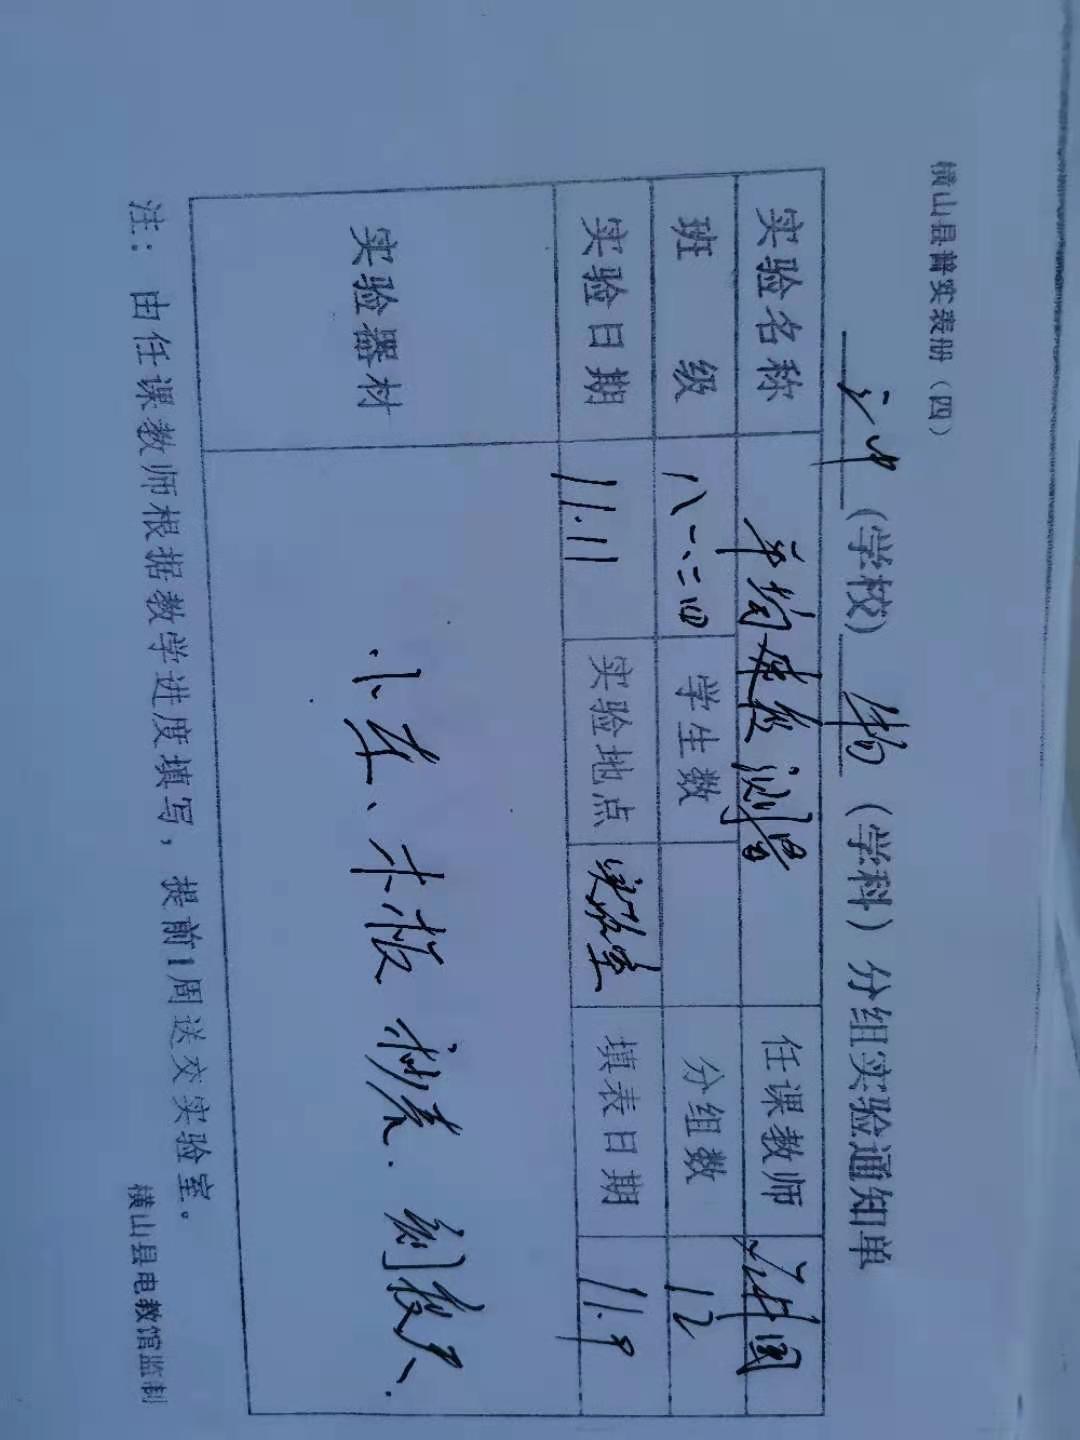 横山县普实表册（四）
(学校) 物 (学科) 分组实验通知单
实验名称 平均速度测量 任课教师
班 级 八一、二四 学生数 分组数 12
实验日期 11.11 实验地点 实验室 填表日期 11.9
实验器材 小车、木板 秒表. 刻度尺.
注：由任课教师根据教学进度填写，提前1周送交实验室。
横山县电教馆监制